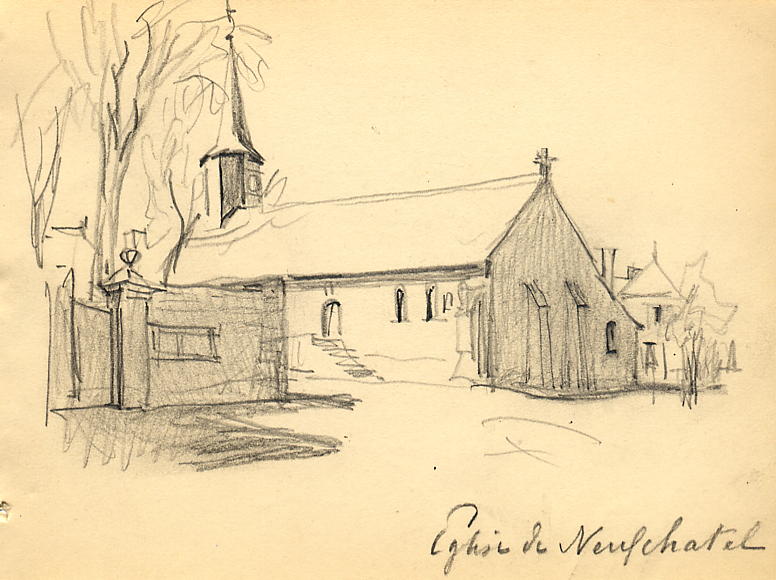 Eglise de Neufchatel